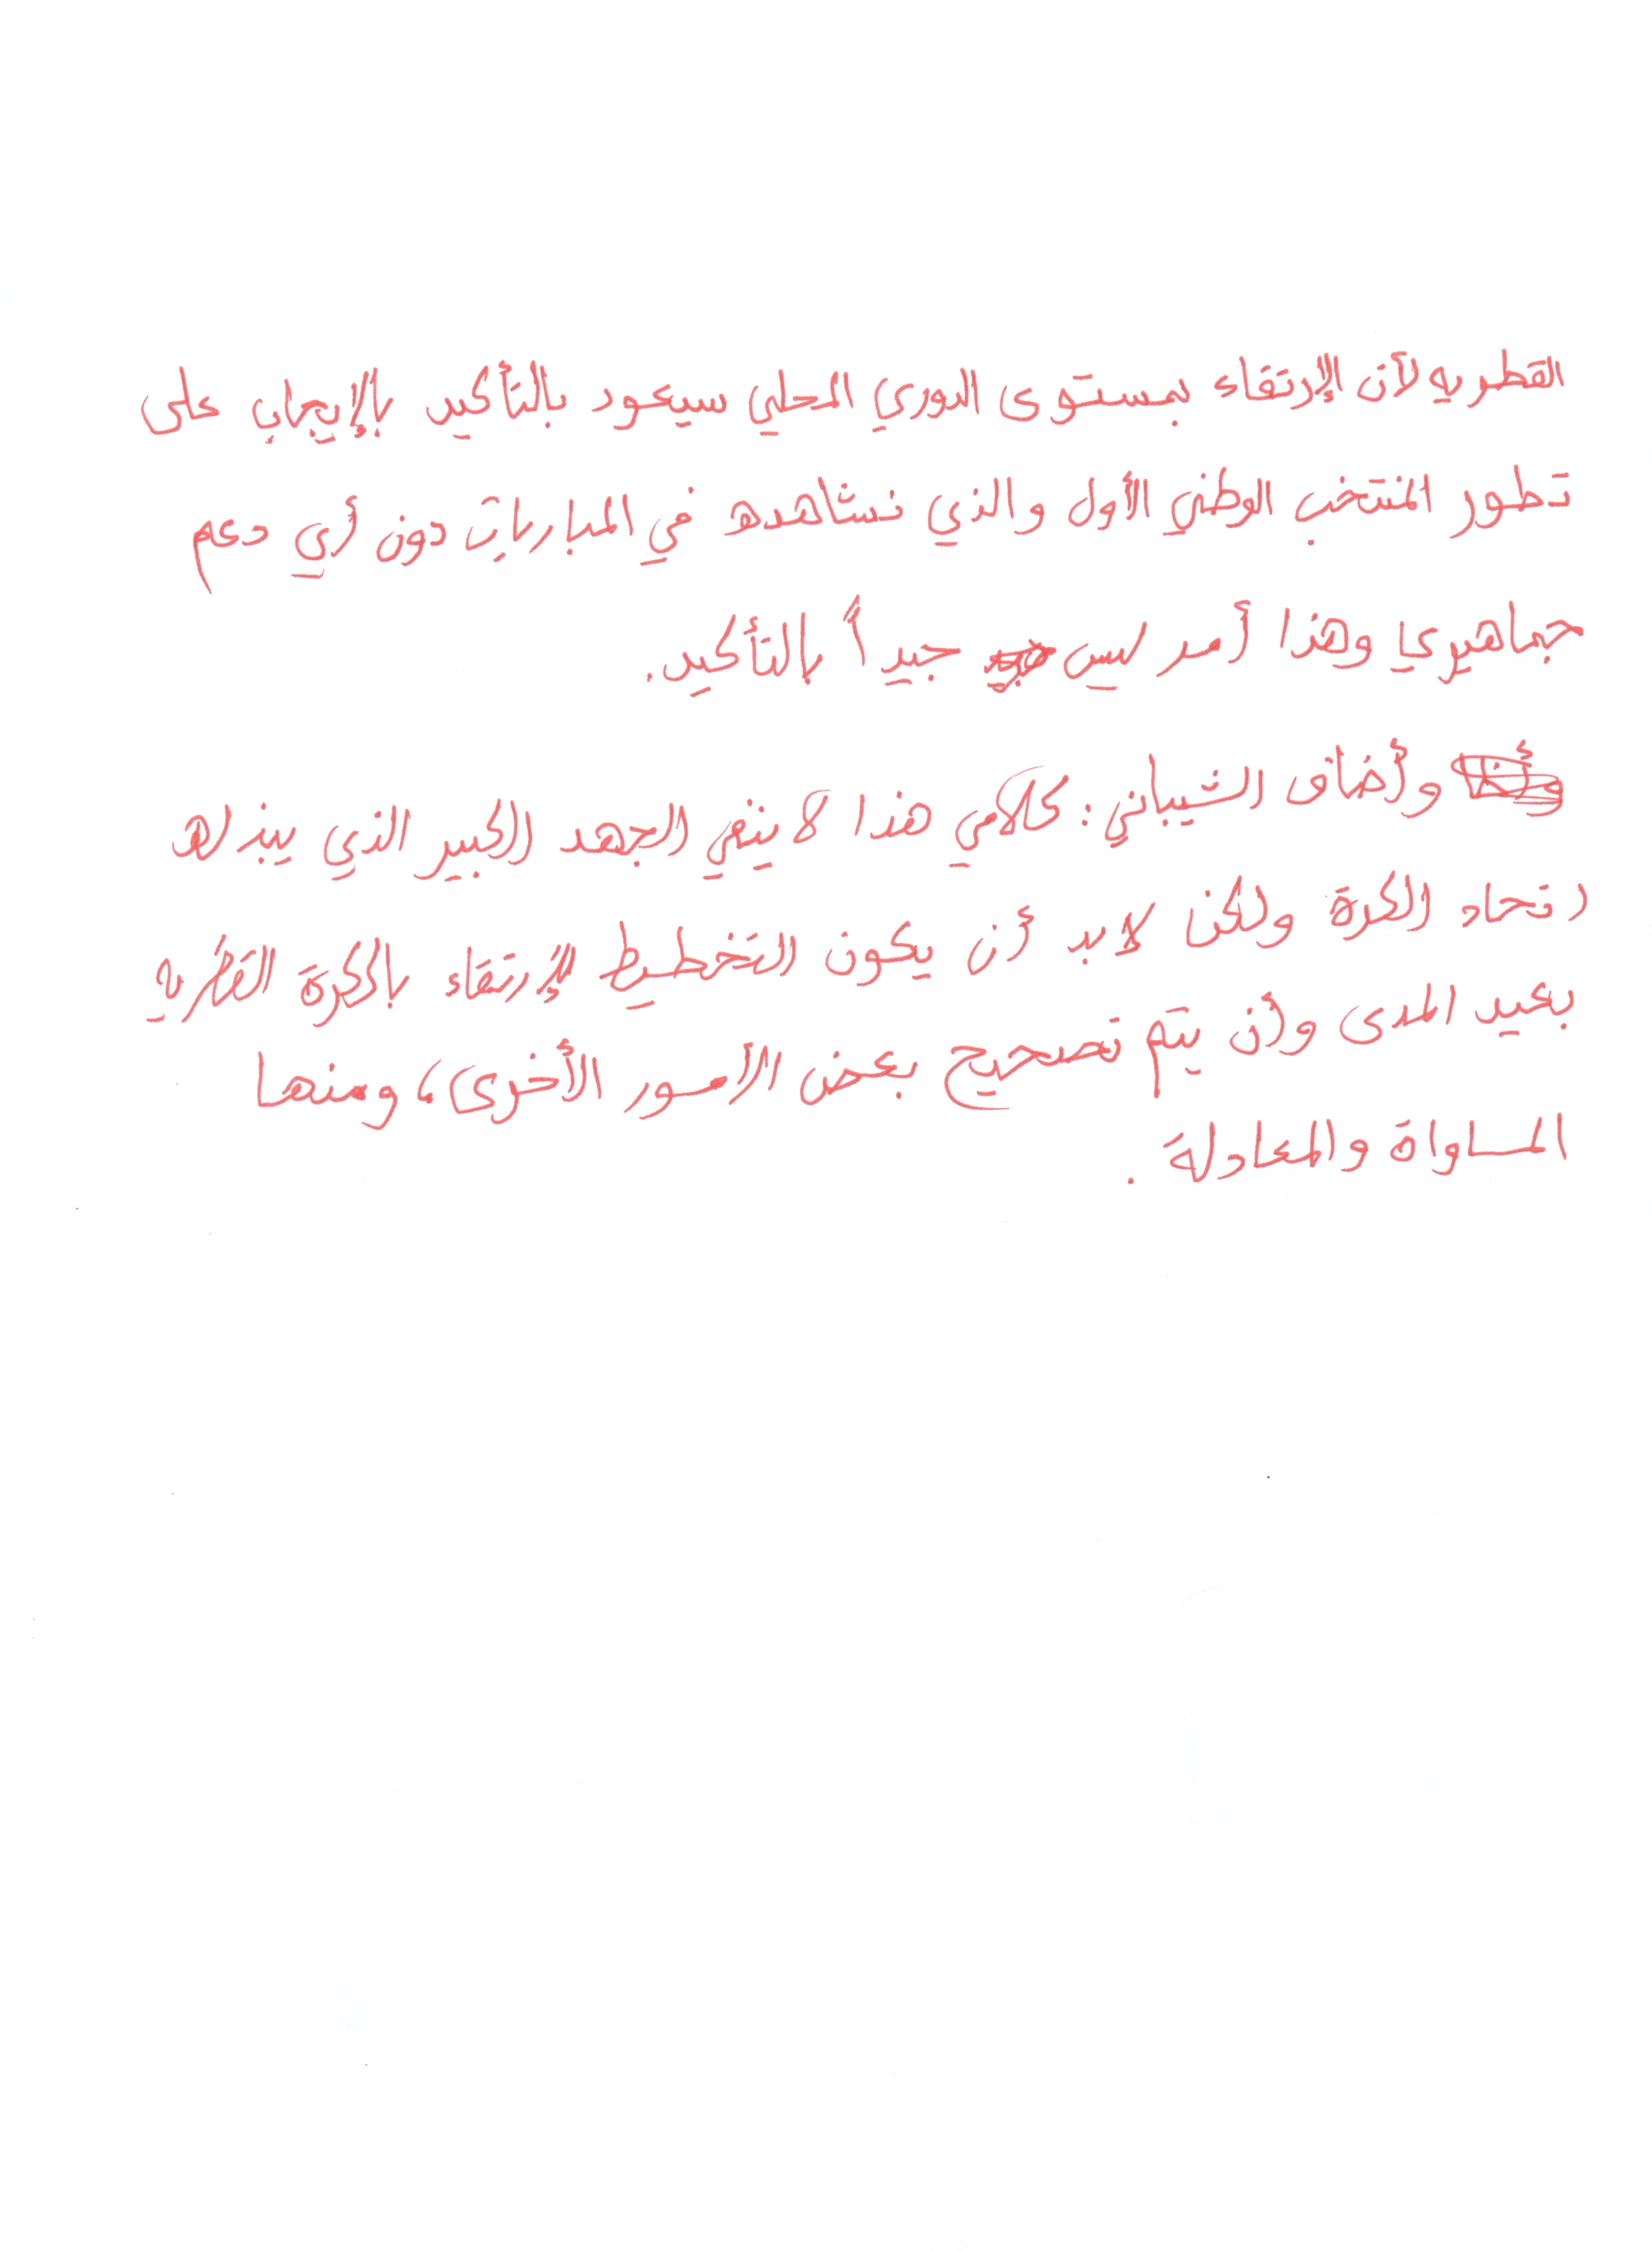 القطريه لأن الإرتقاء بمستوى الدوري المحلي سيعود بالتأكيد بالإيجاب على
تطور المنتخب الوطني الأول والذي نشاهده في المباريات دون أي دعم
جماهيري وهذا أمر ليس جيداً بالتأكيد.
وأضاف الشيباني: كلامي هذا لا ينفي الجهد الكبير الذي يبذله
اتحاد الكرة ولكن لابد أن يكون التخطيط للإرتقاء بالكرة القطريه
بعيد المدى وأن يتم تصحيح بعض الأمور الأخرى، ومنها
المساواة والمعادلة.